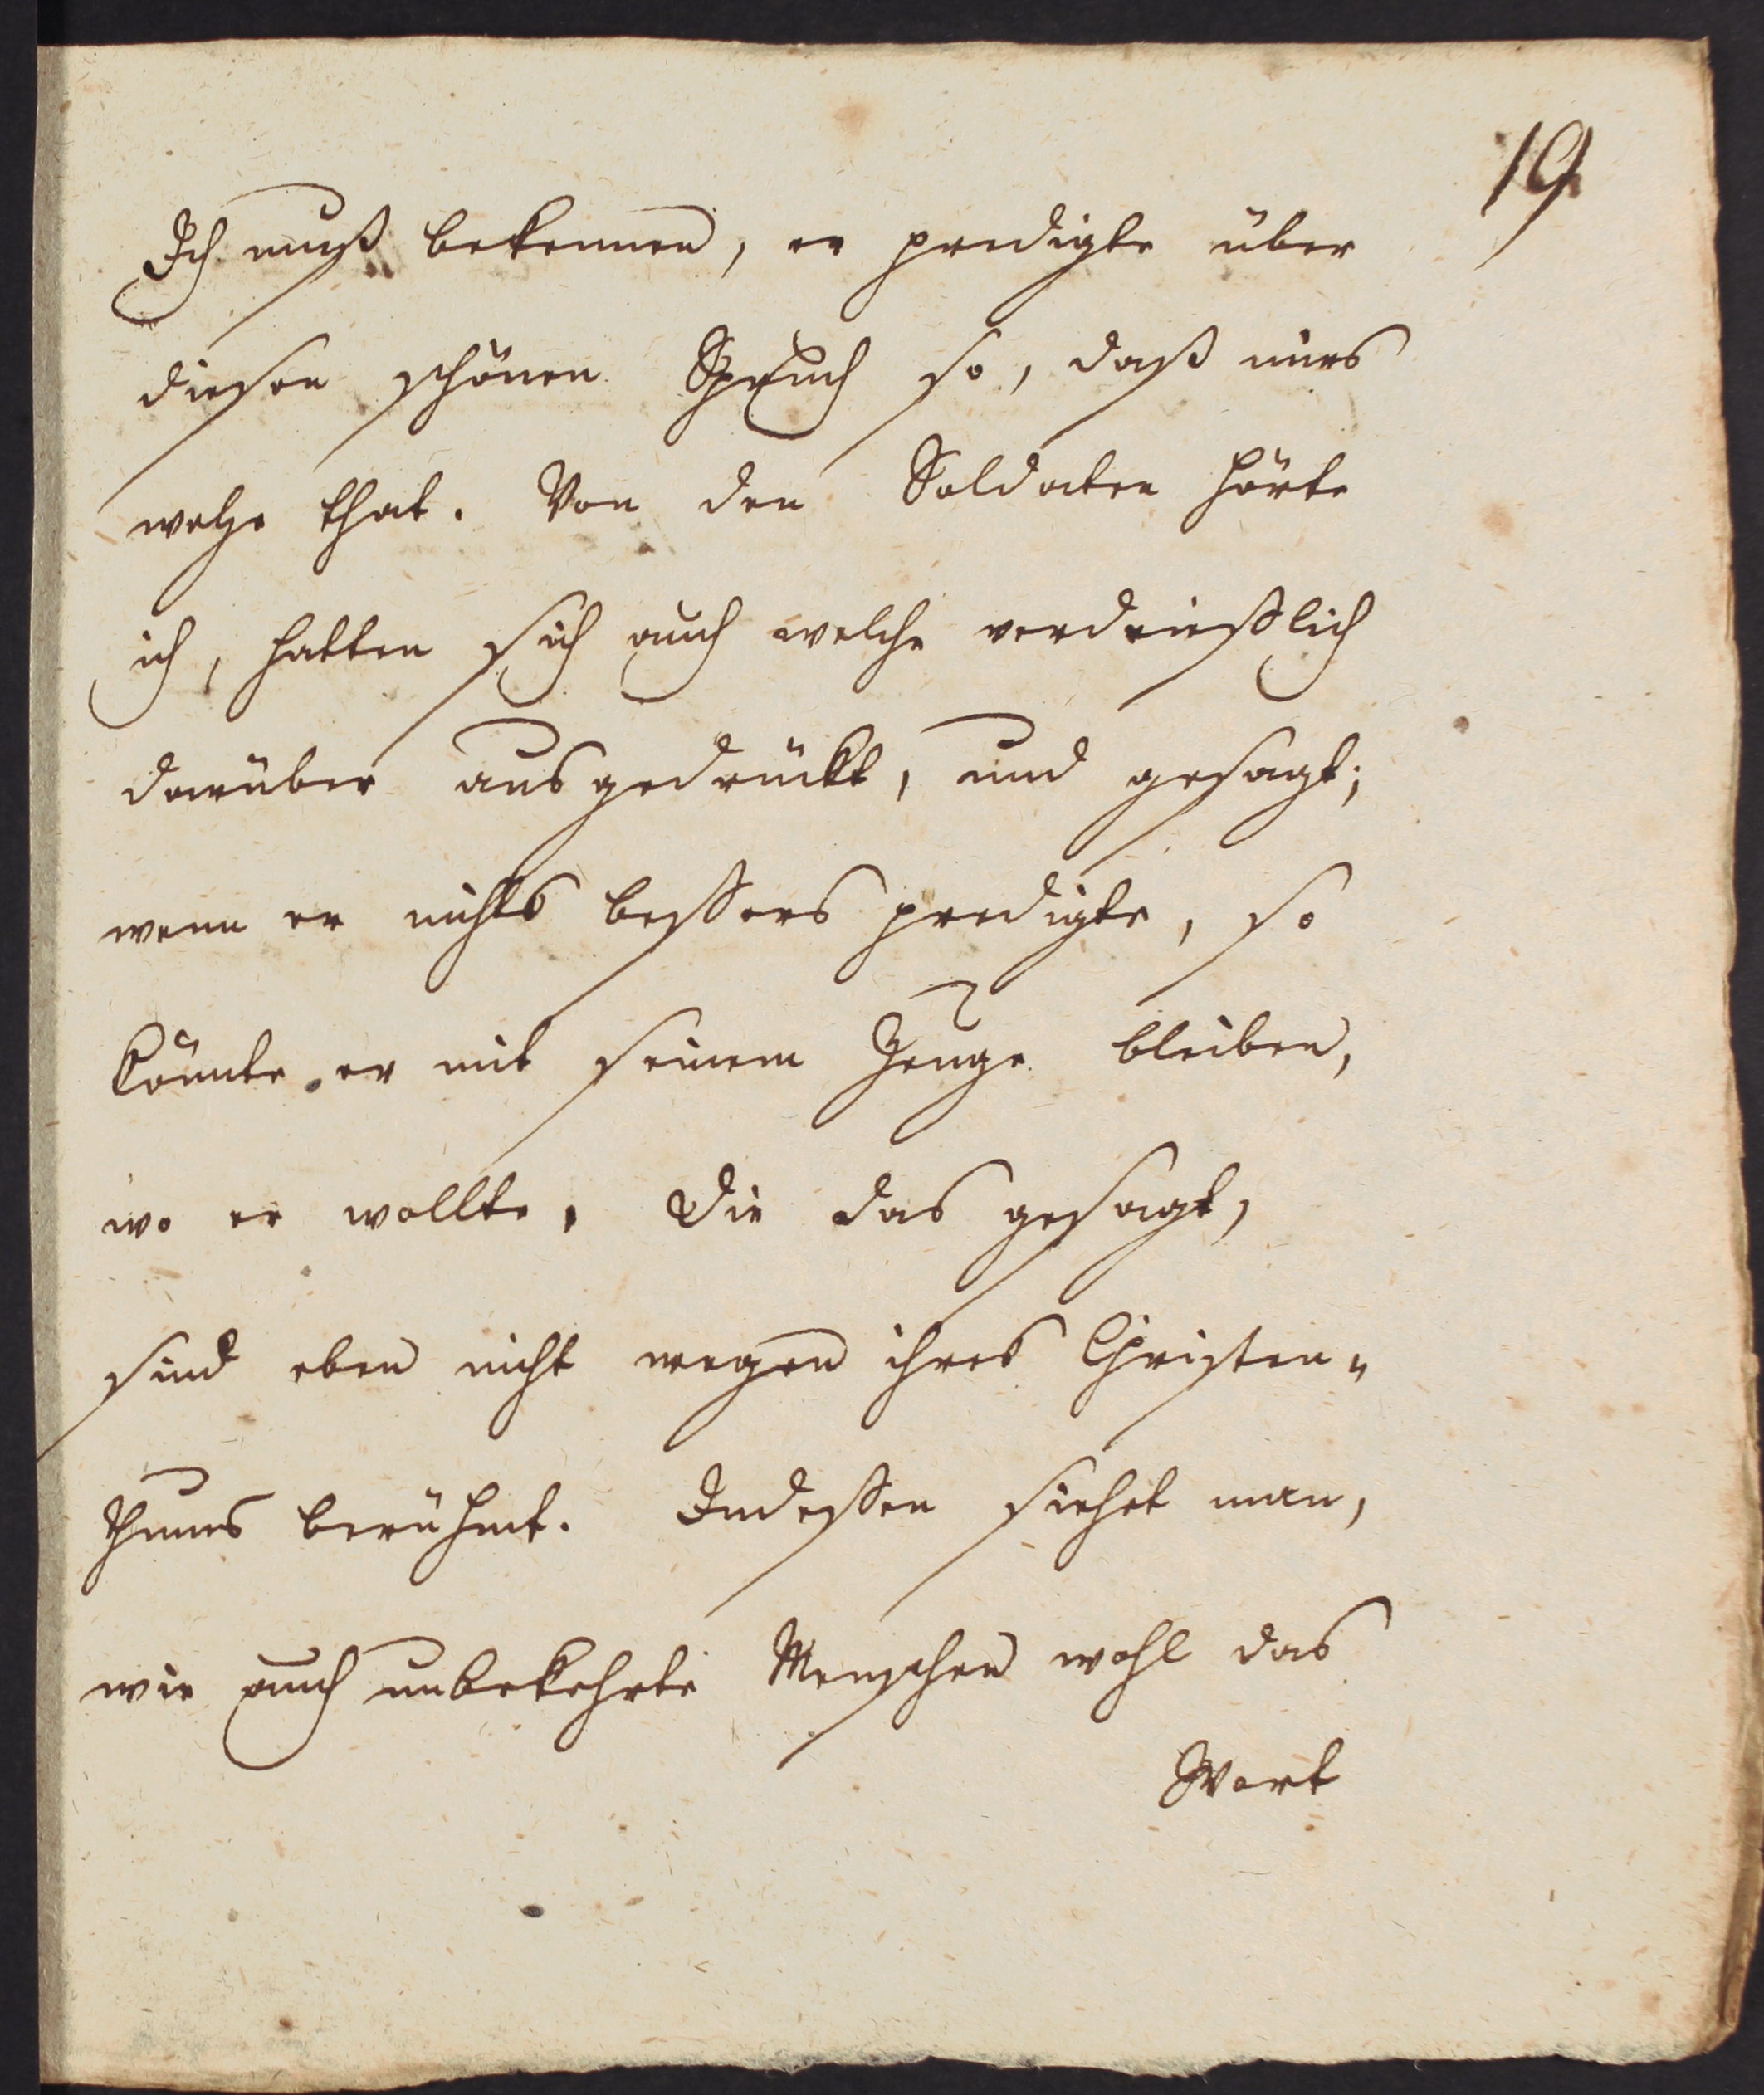 19
Ich muß bekennen, er predigte über
diesen schönen Spruch so, daß mirs
wehe that. Von den Soldaten hörte
ich, hatten sich auch welche verdrießlich
darüber ausgedrückt, und gesagt;
wenn er nichts bessers predigte, so
könnte er mit seinem Zeuge bleiben,
wo er wollte. Die das gesagt,
sind eben nicht wegen ihres Christen„
thums berühmt. Indessen siehet man,
wie auch unbekehrte Menschen wohl das
Wort